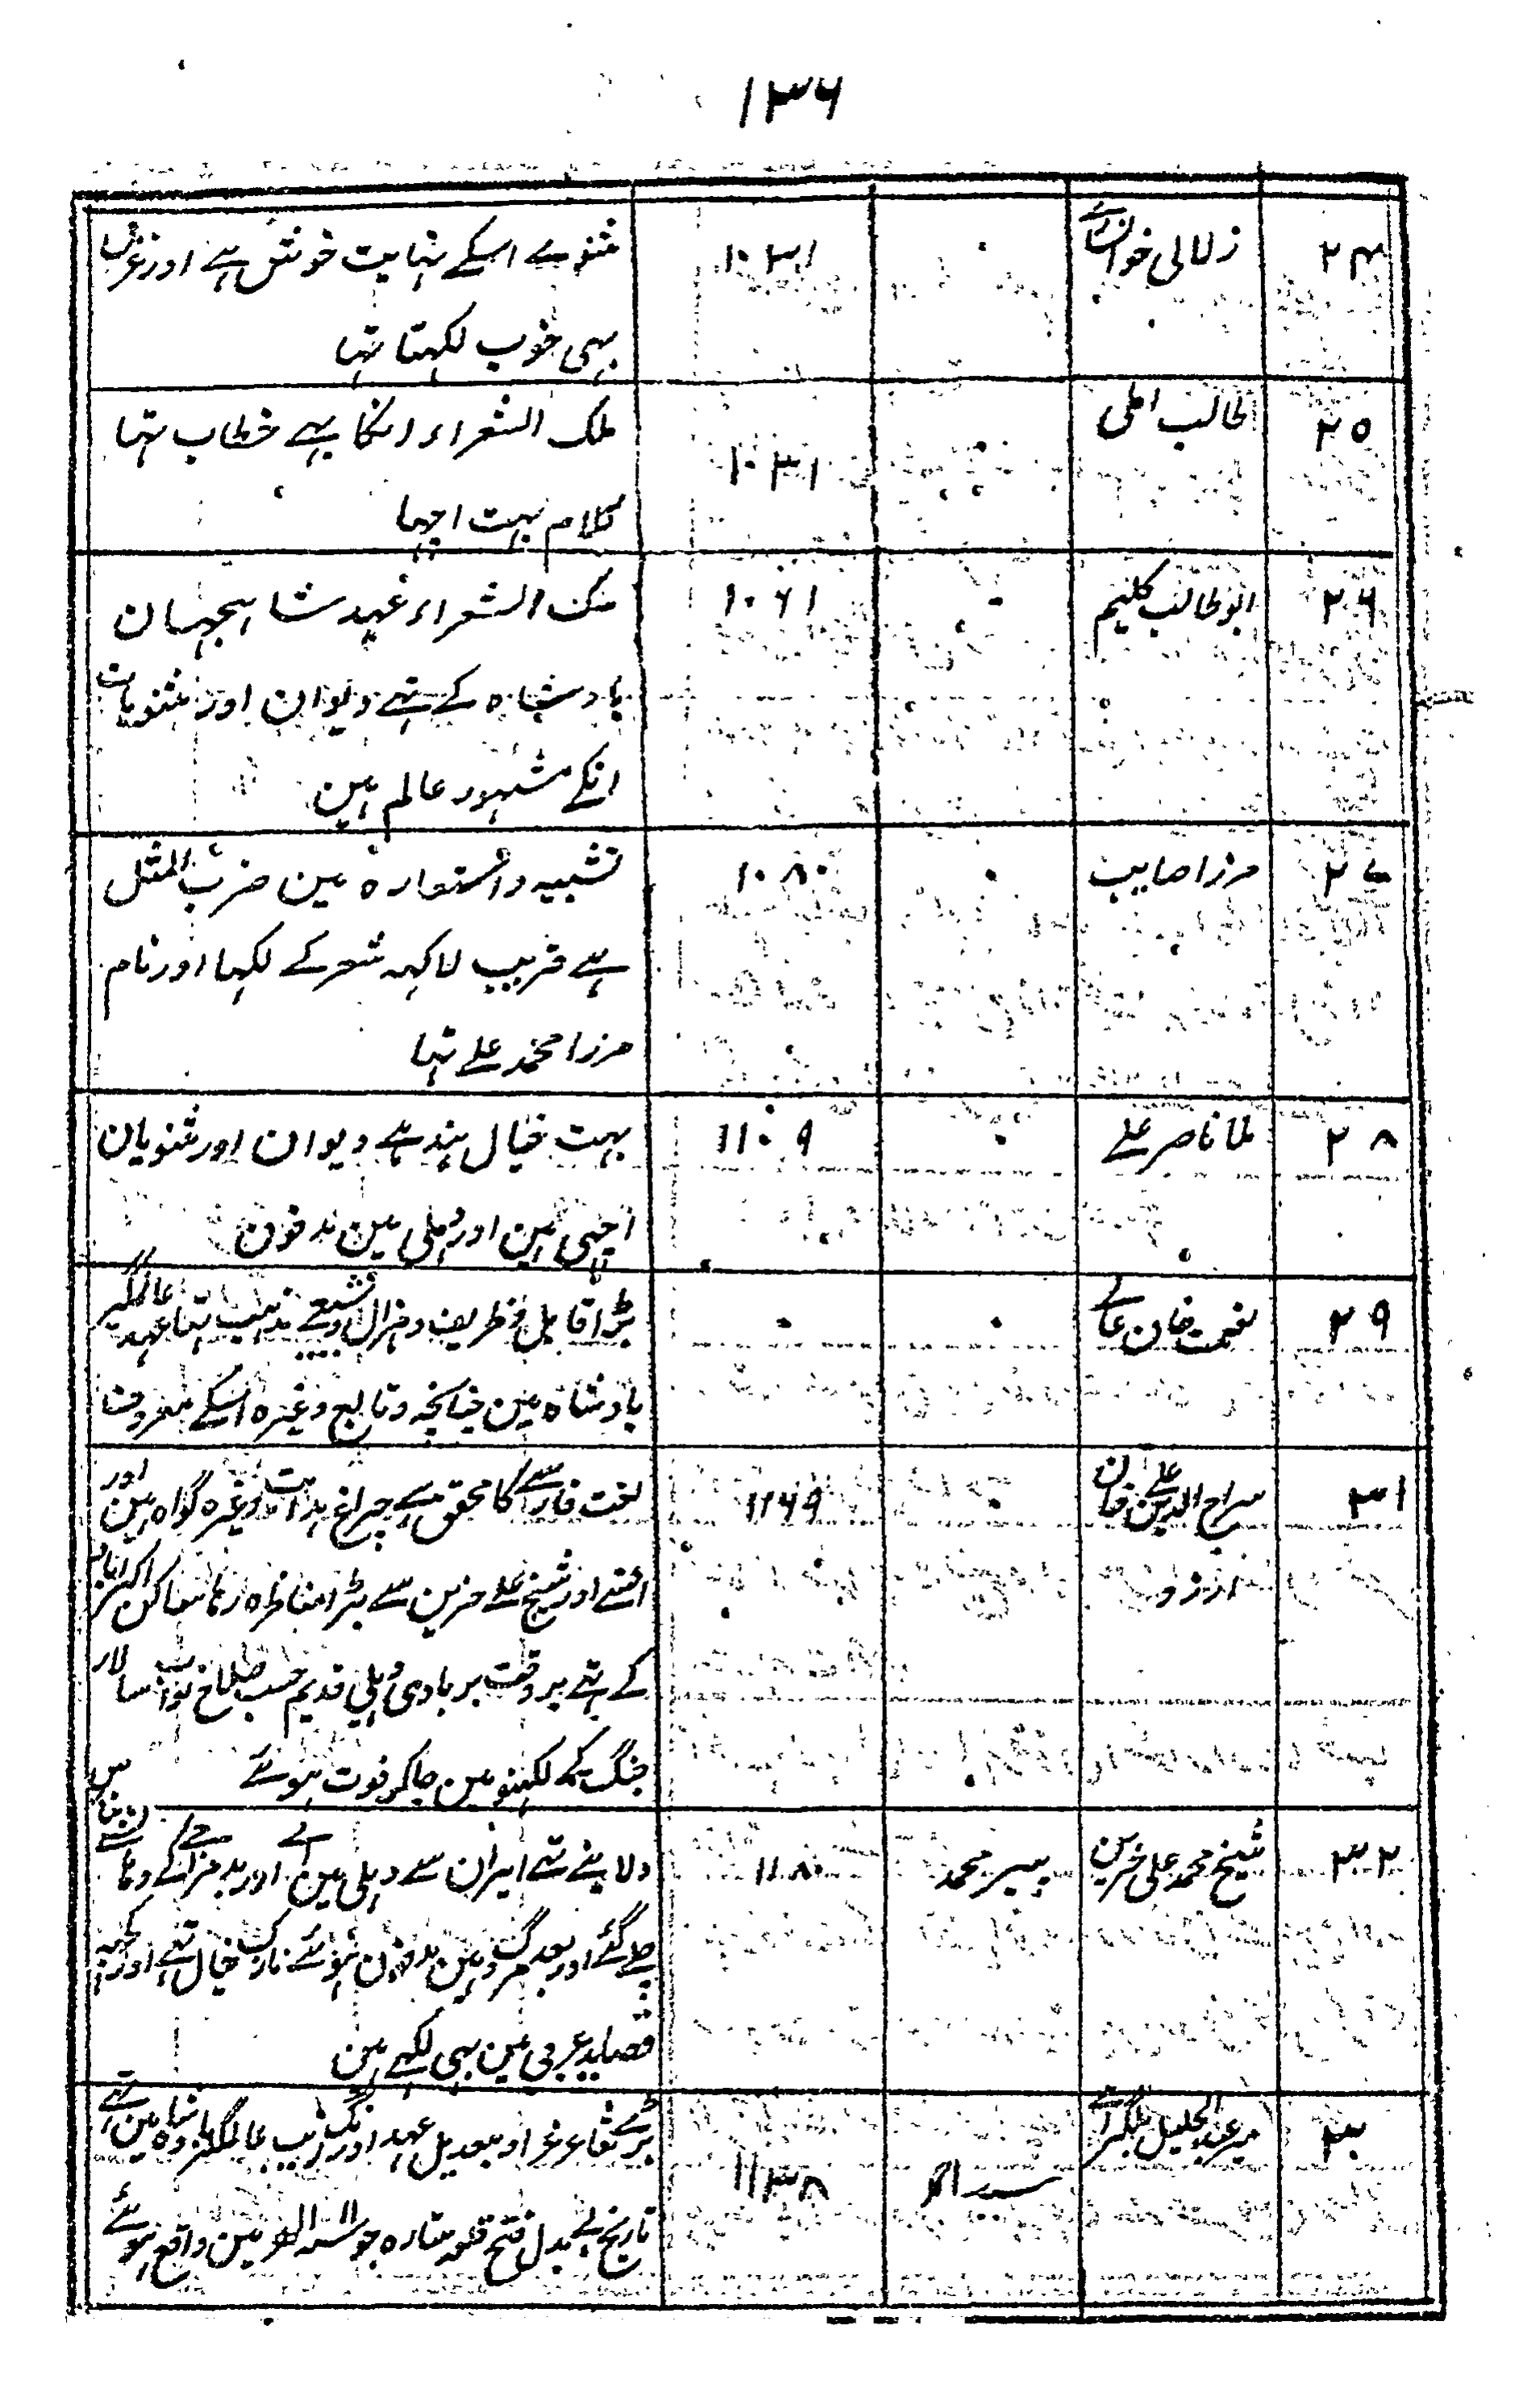 ۱۳۶
۲۴ زلالی خوانساری ۱۰۳۱ مثنوی اسکے نہایت خوش ہے اور غزل
بہی خوب لکہتا تہا
۲۵ طالب املی ۱۰۳۱ ملک الشعراء انکا بہے خطاب تہا
کلام بہت اچہا
۲۶ ابو طالب کلیم ۱۰۶۱ ملک الشعراء عہد شاہجہان
بادشاہ کے تہے دیوان اور مثنویات
انکے مشہور عالم ہین
۲۷ مرزا صایب ۱۰۸۰ تشبیہ و استعارہ مین ضرب المثل
ہے قریب لاکہہ شعر کے لکہا اور نام
مرزا محمد علے تہا
۲۸ ملا ناصر علے ۱۱۰۹ بہت خیال بند ہے دیوان اور مثنویان
اچہی ہین اور دہلی مین مدفون
۲۹ نعمت خان عالے بڑا قابل و ظریف و ہزال و شیعے مذہب تہا عہد عالمگیر
بادشاہ مین چنانچہ وقایع وغیرہ اسکے معروف
۳۱ سراج الدین علے خان ۱۱۶۹ لغت فارسے کا محقق ہے چراغ ہدایت وغیرہ گواہ ہین اور
ارزو انسے اور شیخ علے حزین سے بڑا مناظرہ رہا ساکن اکبراباد
کے تہے بر وقت بربادی دہلی قدیم حسب صلاح نواب سالار
جنگ کے لکہنو مین جاکر فوت ہوئے
۳۲ شیخ محمد علی حزین پسیر محمد ۱۱۸۰ ولایتے تہے ایران سے دہلی مین ائے اور بد مزاجے کے وہانسے بنارس
چلے گئے اور بعد مرگ وہین مدفون ہوئے نازک خیال تہے اور کچہہ
قصاید عربی مین بہی لکہے ہین
۳۳ میر عبد الجلیل بلگرامے سید احمد ۱۱۳۸ بڑے شاعر غرا و بیعدیل عہد اورنگ زیب عالمگیر بادشاہ مین تہے
تاریخ بے بدل فتح قلعہ ستارہ جو مین واقع ہوئے